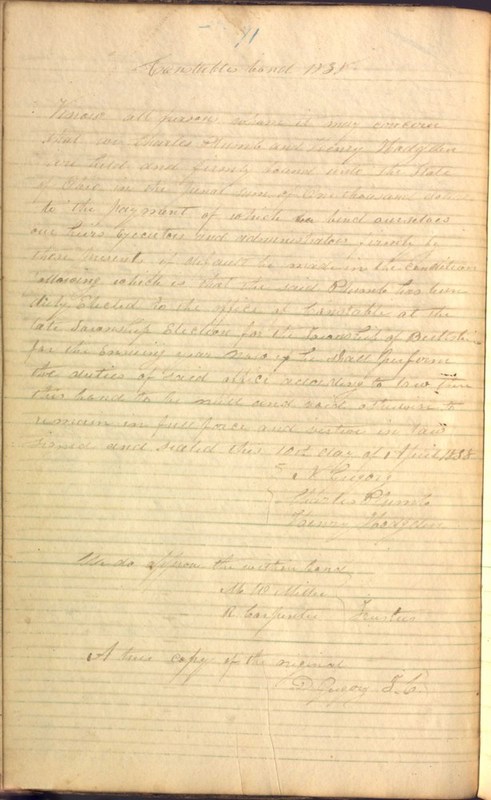 71
Constables bond 1838
Know all persons whom it may concern
that we Charles Plumb and Henry Hodgden
are held and firmly bound unto the State
of Ohio in the penal sum of One thousand
to the payment of which we bind ourselves
our heirs Executors and administrators
these presents if default be made in the Condition
following which is that the said Plumb has been
duly Elected to the office of Constable at the
late Township Election for the Township of
for the Ensuing year Now if he shall perform
the duties of said office according to law then
this bond to be null and void otherwise to
remain in full force and virtue in law
Signed and sealed this 10th day of April 1838
Charles Plumb
Henry Hodgden
We do approve the within bond
Trustees
R Carpenter
A true copy of the original
D Gregory T. C.